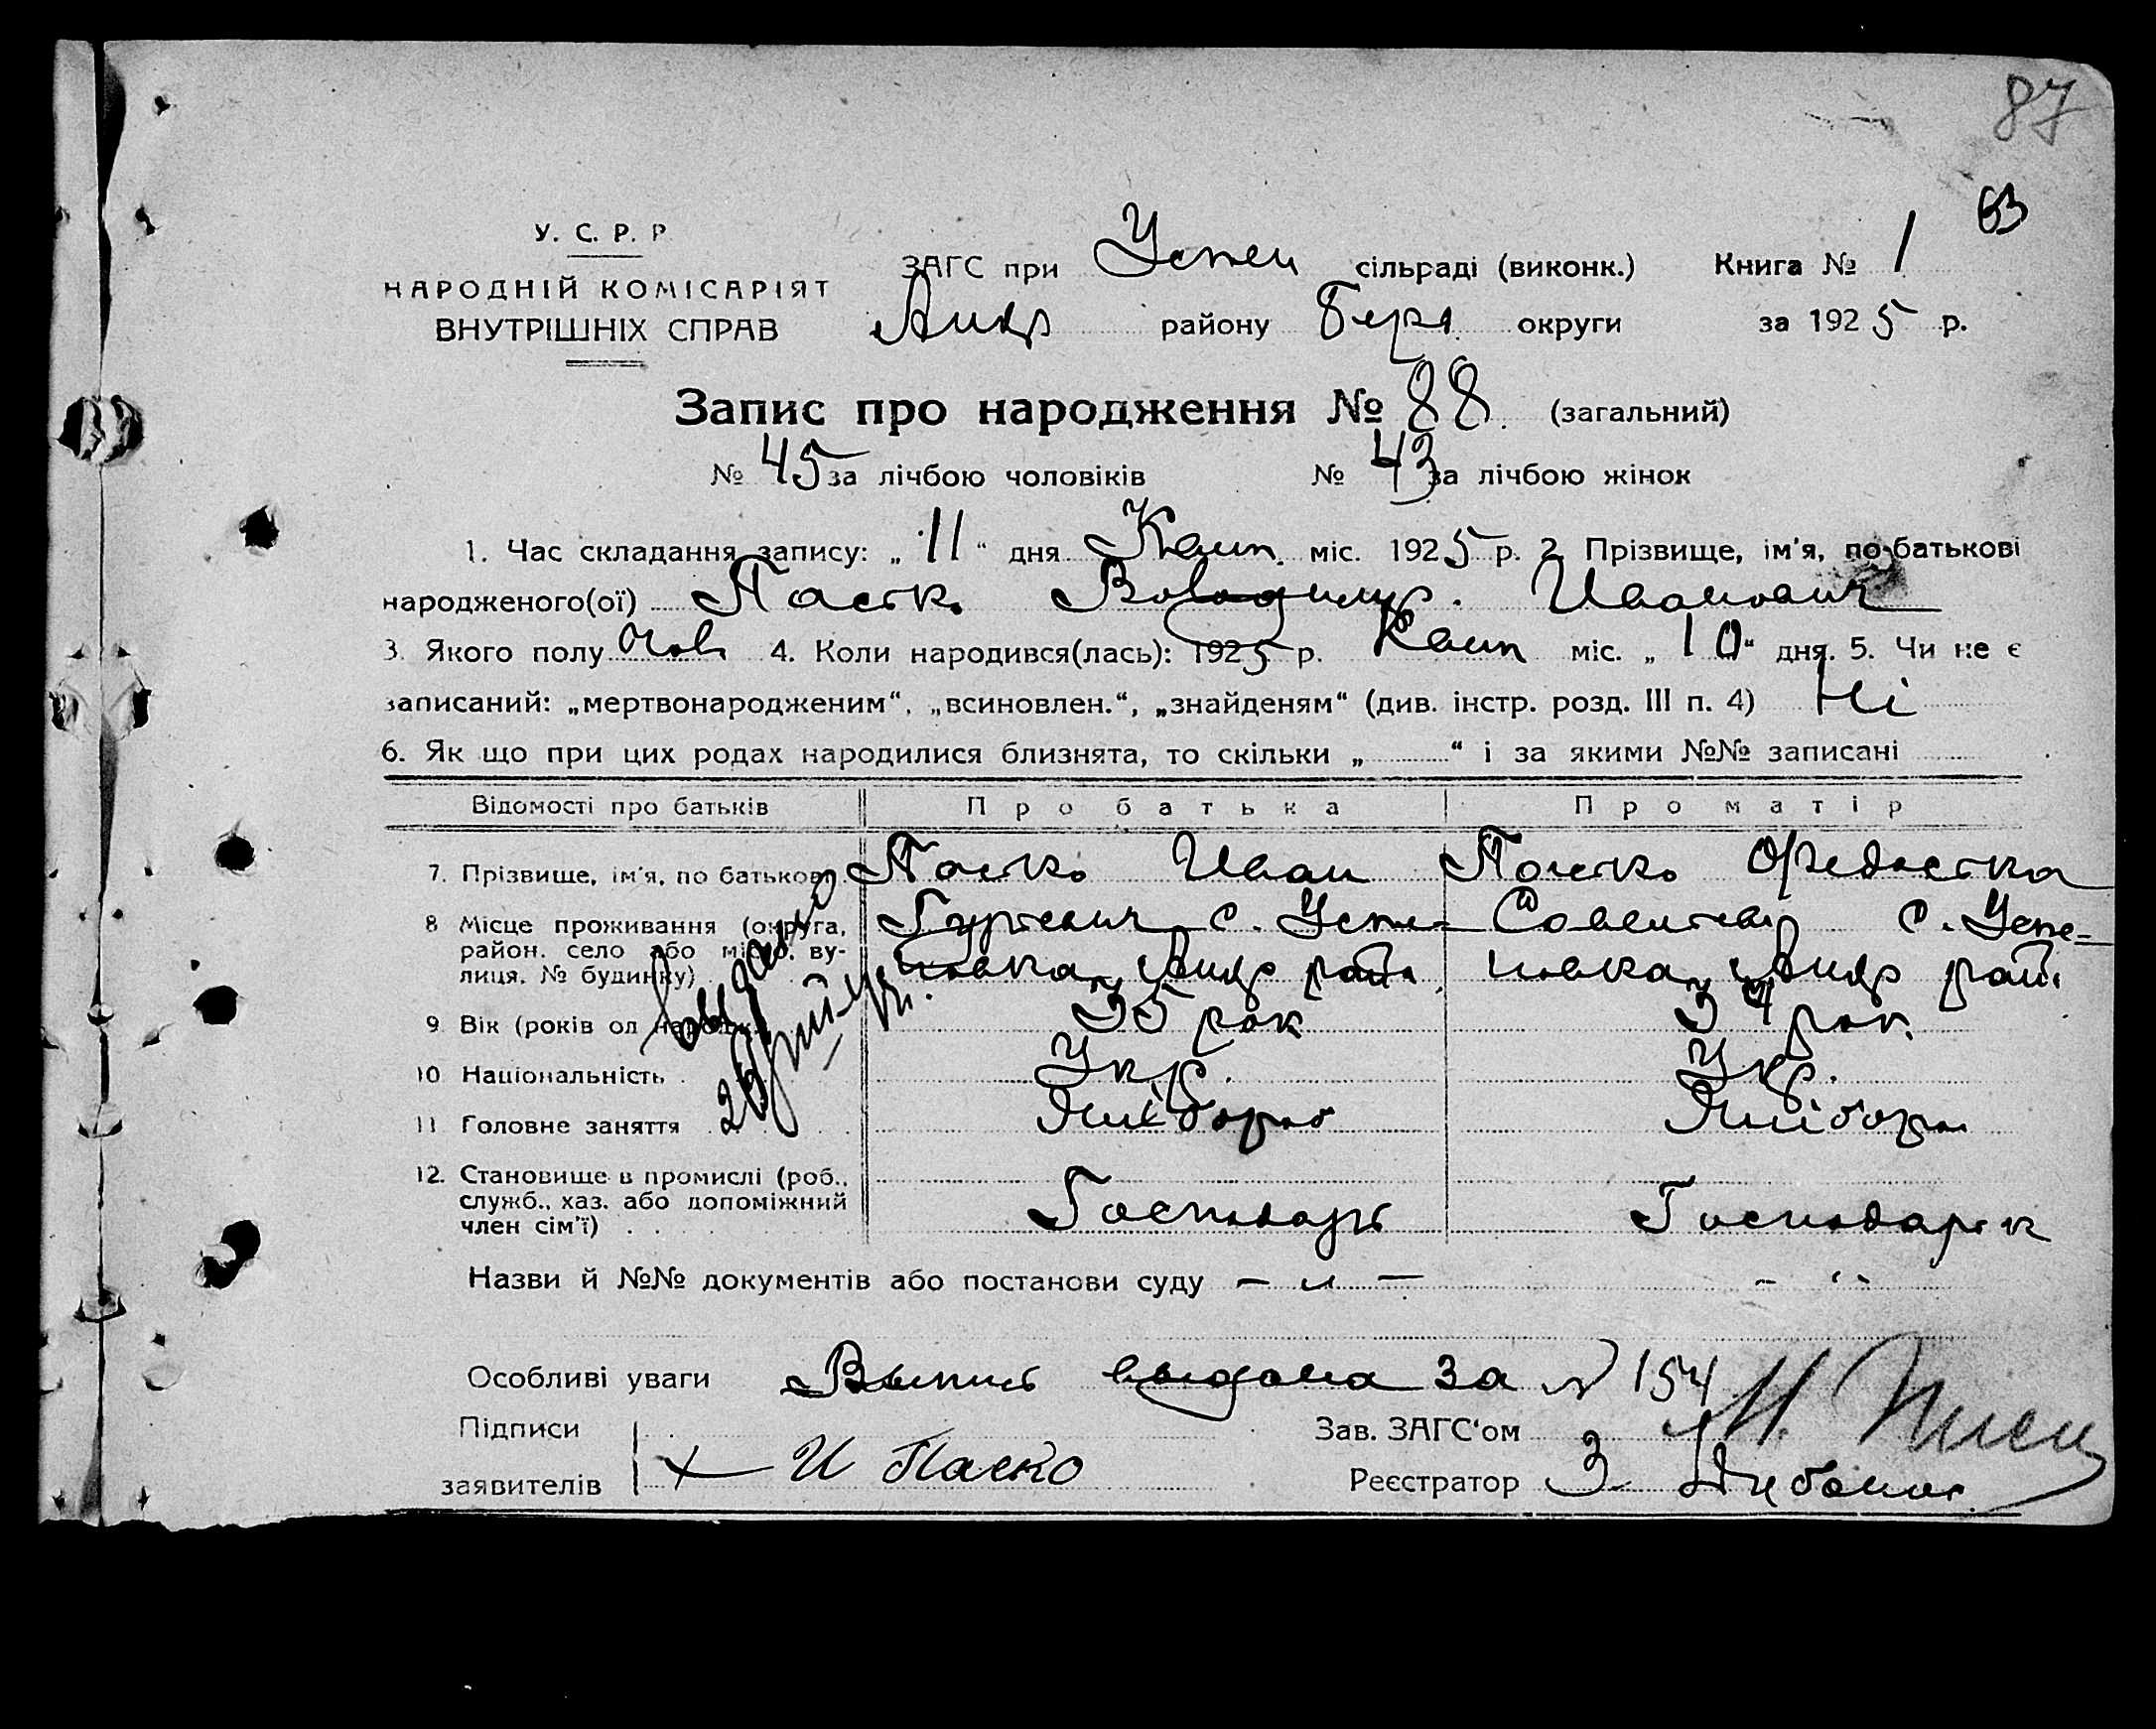 87
53
У. С. Р. Р.
НАРОДНІЙ КОМІСАРІЯТ
ВНУТРІШНІХ СПРАВ
ЗАГС при Успен сільраді (виконк.) Книга № 1
Андр району Берд округи за 1925 р.
Запис про народження № 88 (загальний)
№ 45 за лічбою чоловіків № 43 за лічбою жінок
1. Час складання запису: „11“ дня міс. 1925 р. 2. Прізвище, ім'я, по-батькові
народженого(ої) Пастко Володимир. Иванович
3. Якого полу Чов 4. Коли народився(лась): 1925 р. міс. „10“ дня. 5. Чи не є
записаний: „мертвонародженим“, „всиновлен.“, „знайденям“ (див. інстр. розд. III п. 4) Ні
6. Як що при цих родах народилися близнята, то скільки „ “ і за якими №№ записані
Відомості про батьків Про батька Про матір
7. Прізвище, ім'я, по батькові Пастко Иван Пастко
8 Місце проживання (округа, с. Успе- с. Успе-
район, село або місто, ву-
лиця, № будинку) новка, Андр рай. новка, Андр рай.
9 Вік (років од народж.) 35 рок 34 рок.
10 Національність Укр. Укр.
11 Головне заняття Хлібороб Хлібороб
12. Становище в промислі (роб.,
служб., хаз. або допоміжний Господарь Господарк
член сім'ї)
выдано
Назви й №№ документів або постанови суду — „ — - „
Особливі уваги Выпись выдана за № 154
Підписи Зав. ЗАГС'ом М.
заявителів + И Паско Реєстратор З.